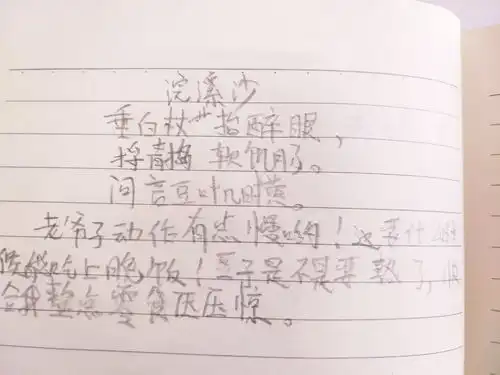 浣溪沙
垂白杖藜抬醉眼，
捋青捣 软饥肠。
问言豆叶几时黄。
老爷子动作有点慢哟！还要什么时
候能吃上晚饭！豆子是不是要熟了，快
给我整点零食压压惊。